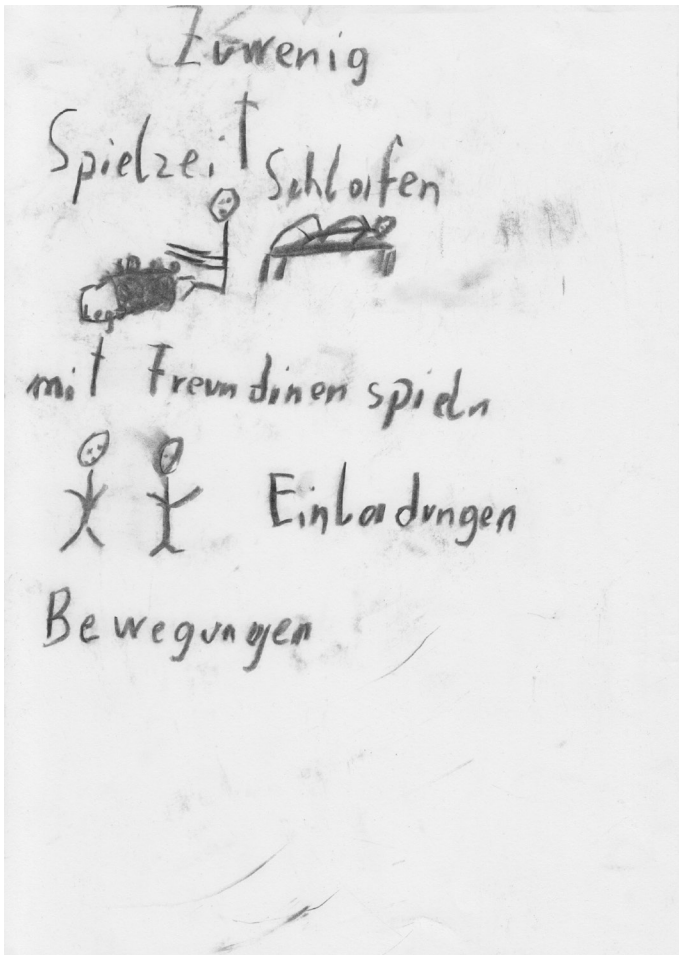 Zuwenig
Spielzeit Schlafen
Lego
mit Freundinen spieln
Einladungen
Bewegungen